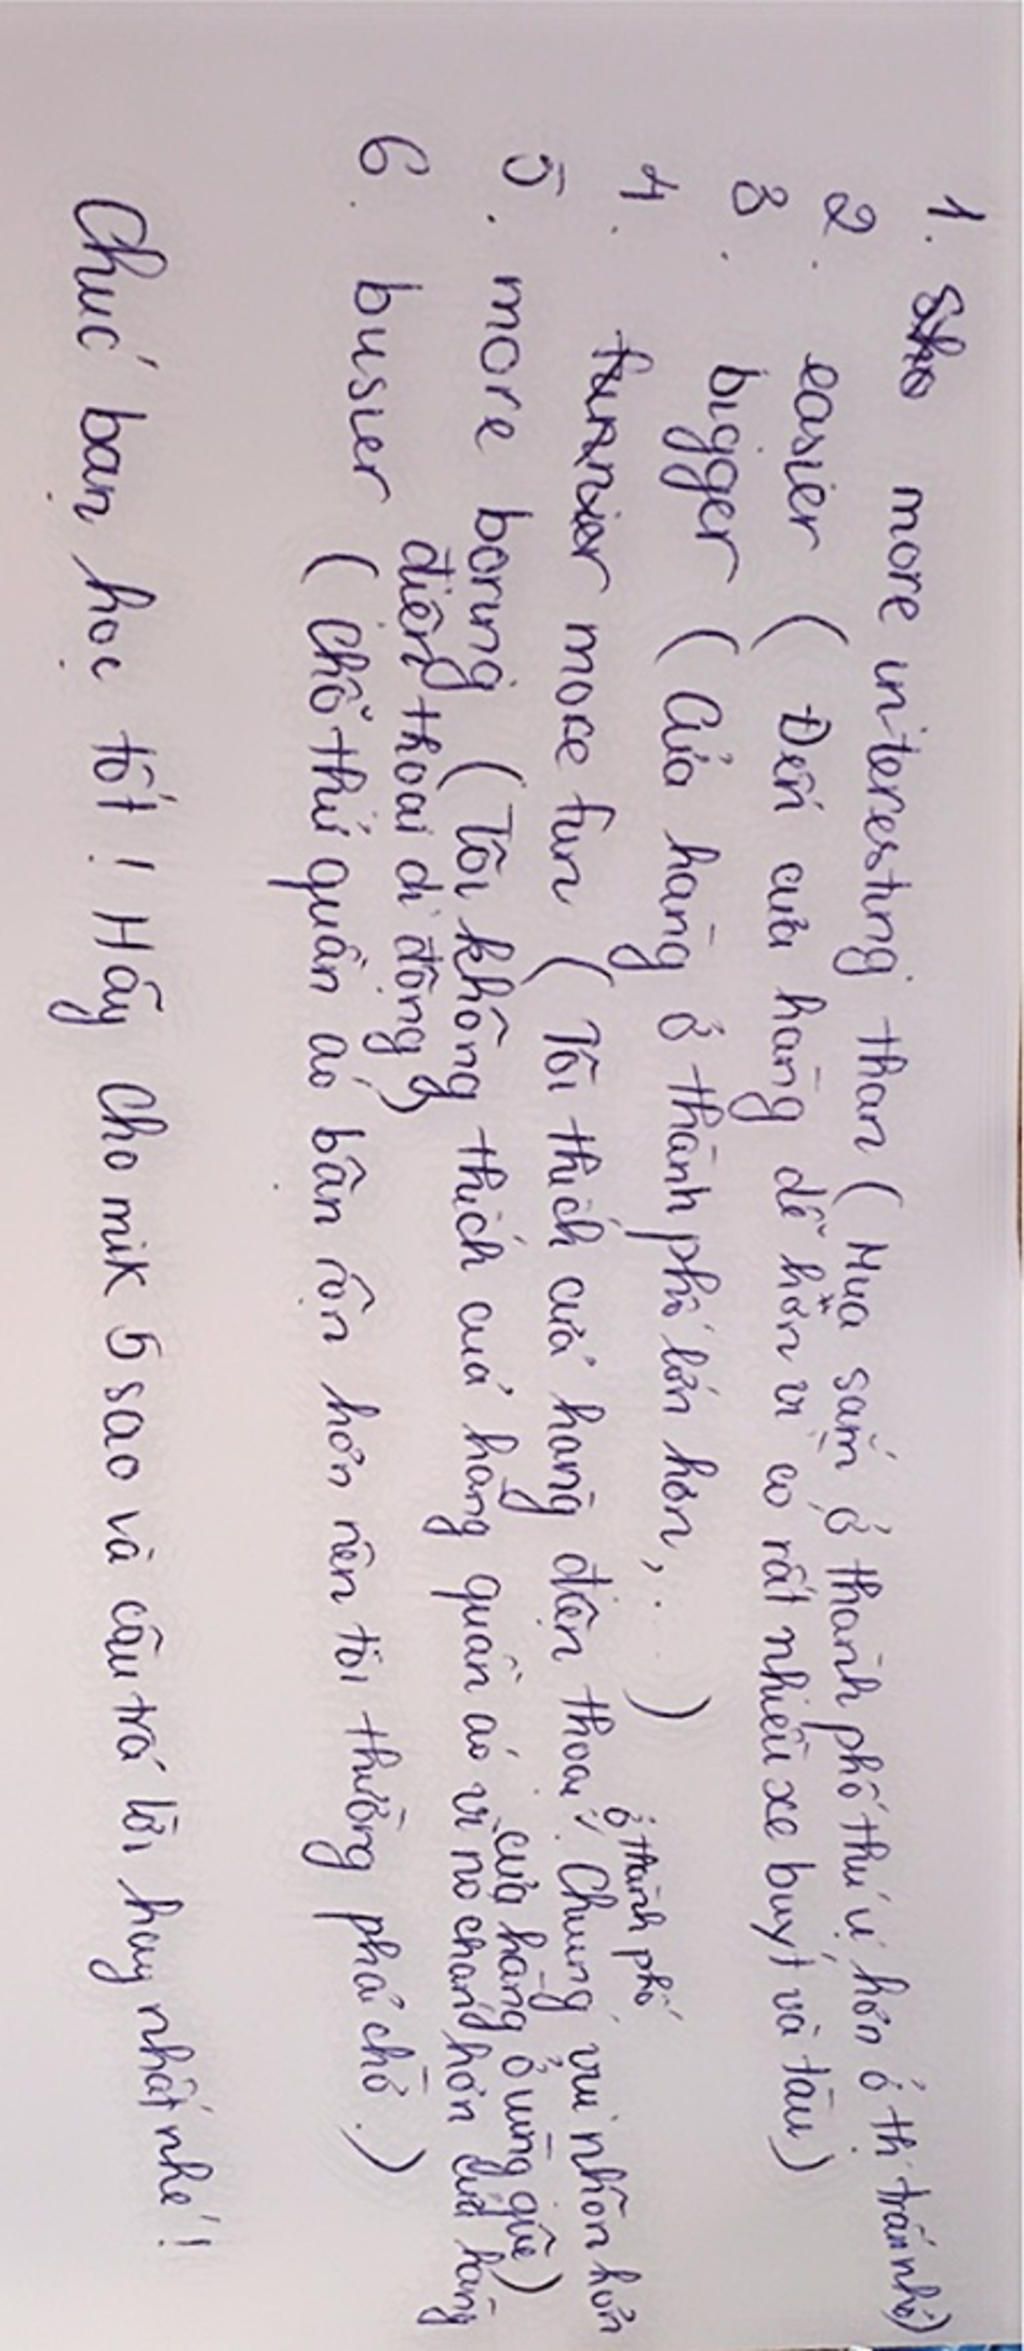 1. Sho more interesting than (Mua sắm ở thành phố thú vị hơn ở thị trấn nhỏ)
2. easier (Đến cửa hàng dễ hơn vì có rất nhiều xe buýt và tàu)
3. bigger (Cửa hàng ở thành phố lớn hơn,...)
4. funnier more fun (Tôi thích cửa hàng điện thoại ở thành phố. Chúng vui nhộn hơn
cửa hàng ở vùng quê)
5. more boring (Tôi không thích cửa hàng quần áo vì nó chán hơn cửa hàng
điện thoại di động)
6. busier (Chỗ thử quần áo bận rộn hơn nên tôi thường phải chờ.)
Chúc bạn học tốt! Hãy cho mik 5 sao và câu trả lời hay nhất nhé!